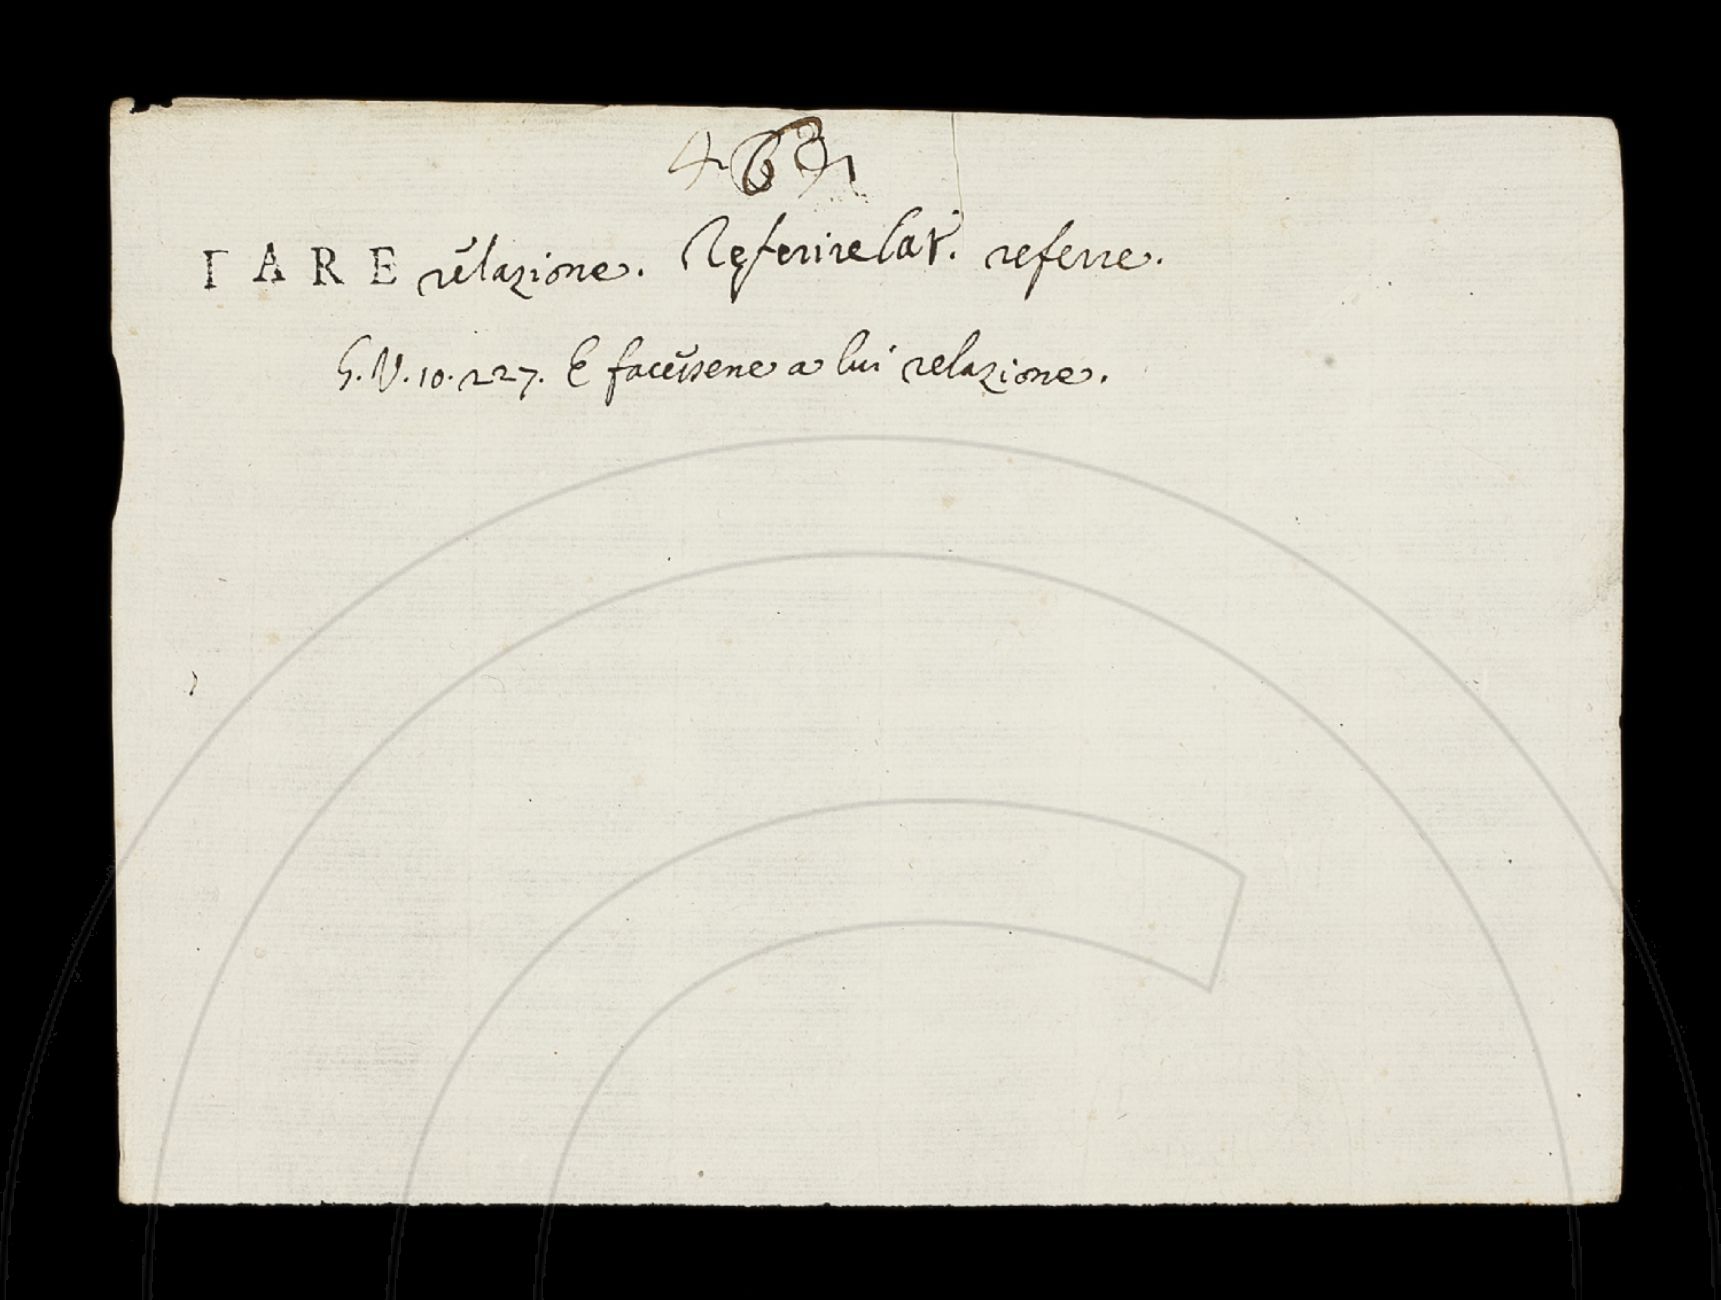 FARE relazione. Referire lat. referre.
G. V. 10. 227. E facessene a lui relazione.